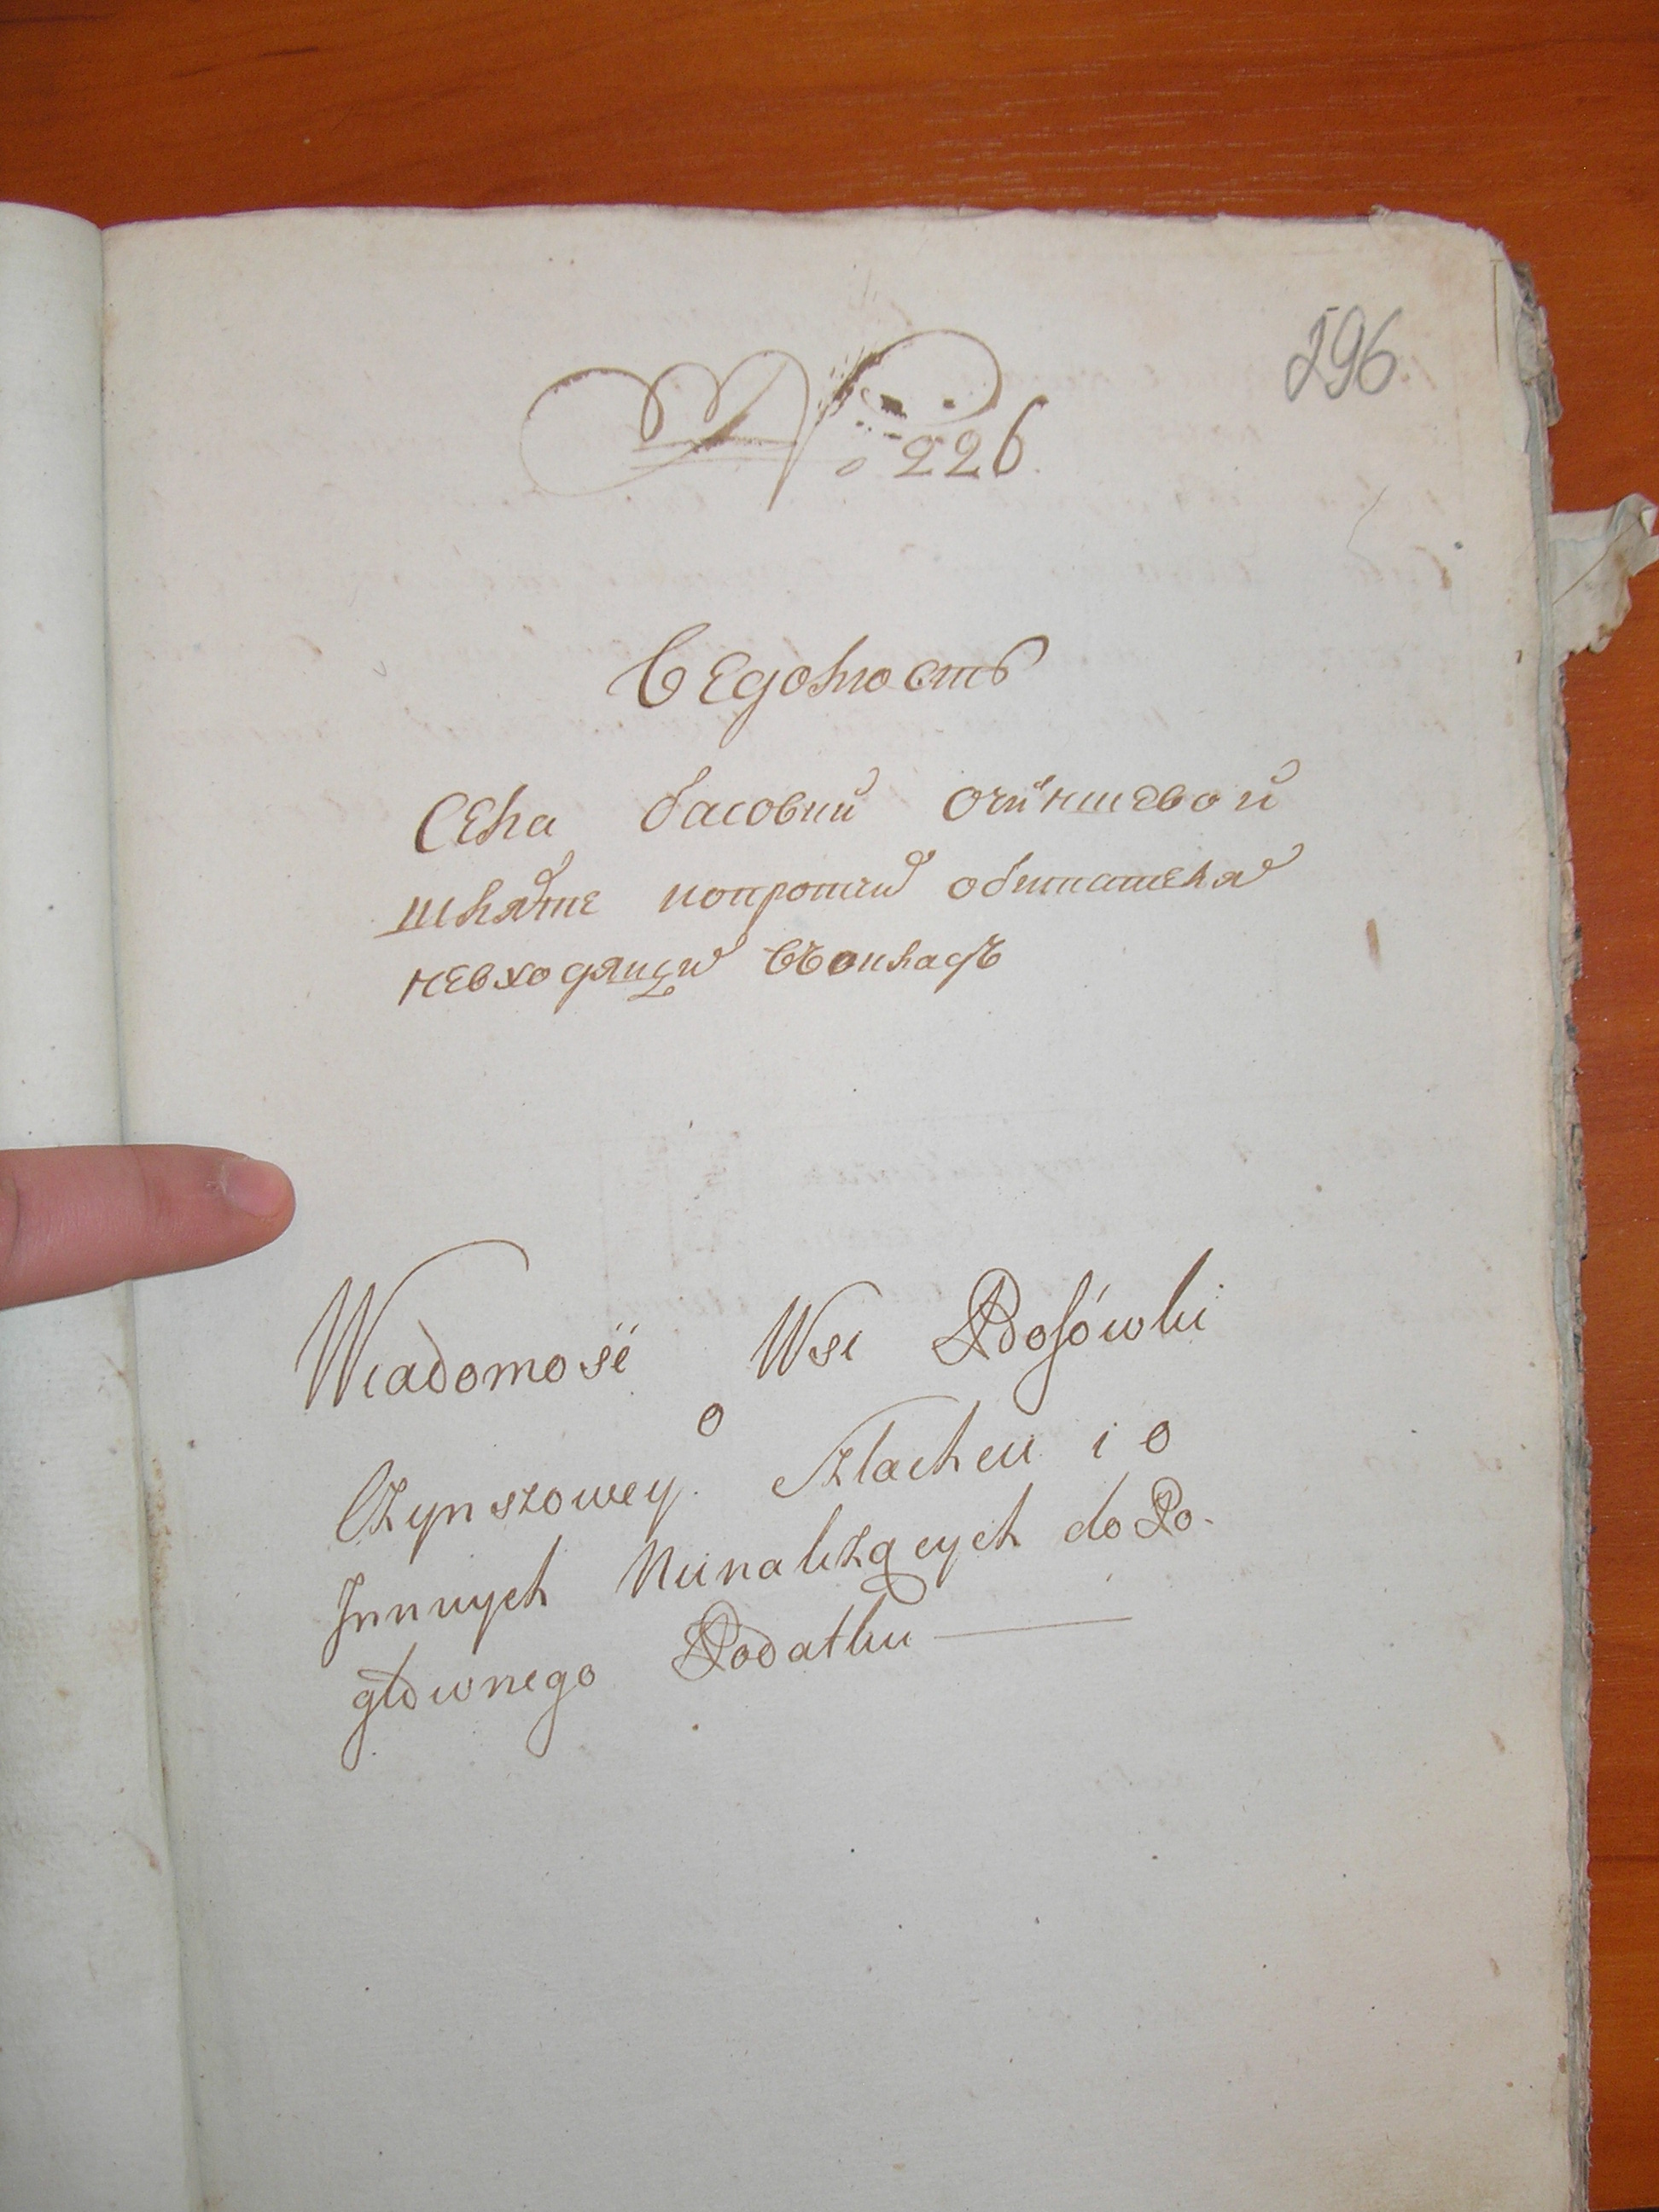 296
№ 226.
Ведомость
Села басовки очиншевой
шляхте и опротчи обитателя
невходящи въ окладъ
Wiadomość Wsi Bosówki
o
Czynszowey Szlachcie i o
Innnych Nienależących do Po-
głównego Podatku